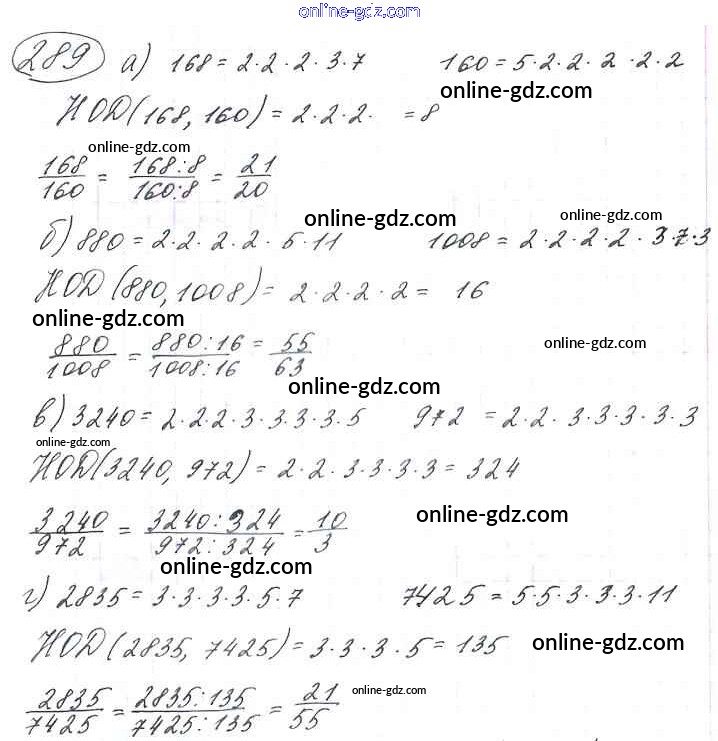 online-gdz.com
289 а) 168 = 2·2·2·3·7 160 = 5·2·2·2·2·2
online-gdz.com
НОД(168, 160) = 2·2·2· = 8
online-gdz.com
168/160 = 168:8/160:8 = 21/20
online-gdz.com online-gdz.com
б) 880 = 2·2·2·2·5·11 1008 = 2·2·2·2·3·7·3
НОД(880, 1008) = 2·2·2·2 = 16
online-gdz.com
880/1008 = 880:16/1008:16 = 55/63
online-gdz.com
online-gdz.com
в) 3240 = 2·2·2·3·3·3·3·5 972 = 2·2·3·3·3·3·3
online-gdz.com
НОД(3240, 972) = 2·2·3·3·3·3 = 324
3240/972 = 3240:324/972:324 = 10/3
online-gdz.com
online-gdz.com
г) 2835 = 3·3·3·3·5·7 7425 = 5·5·3·3·3·11
НОД(2835, 7425) = 3·3·3·5 = 135
online-gdz.com
2835/7425 = 2835:135/7425:135 = 21/55
online-gdz.com